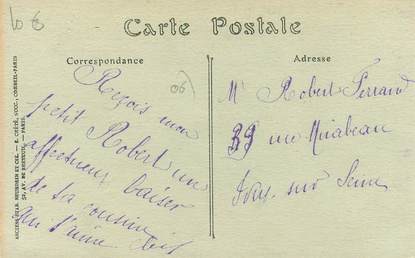 10 €
Carte Postale
Correspondance
Adresse
Reçois mon
petit Robert un
affectueux baiser
de ta cousine
qui t'aime
(06)
Mr Robert Ferrand
39 rue Mirabeau
Ivry sur Seine
ANCIENS ÉTAB. NEURDEIN ET CIE. — E. CRÉTÉ, SUCC. CORBEIL-PARIS
52, AV. DE BRETEUIL — PARIS